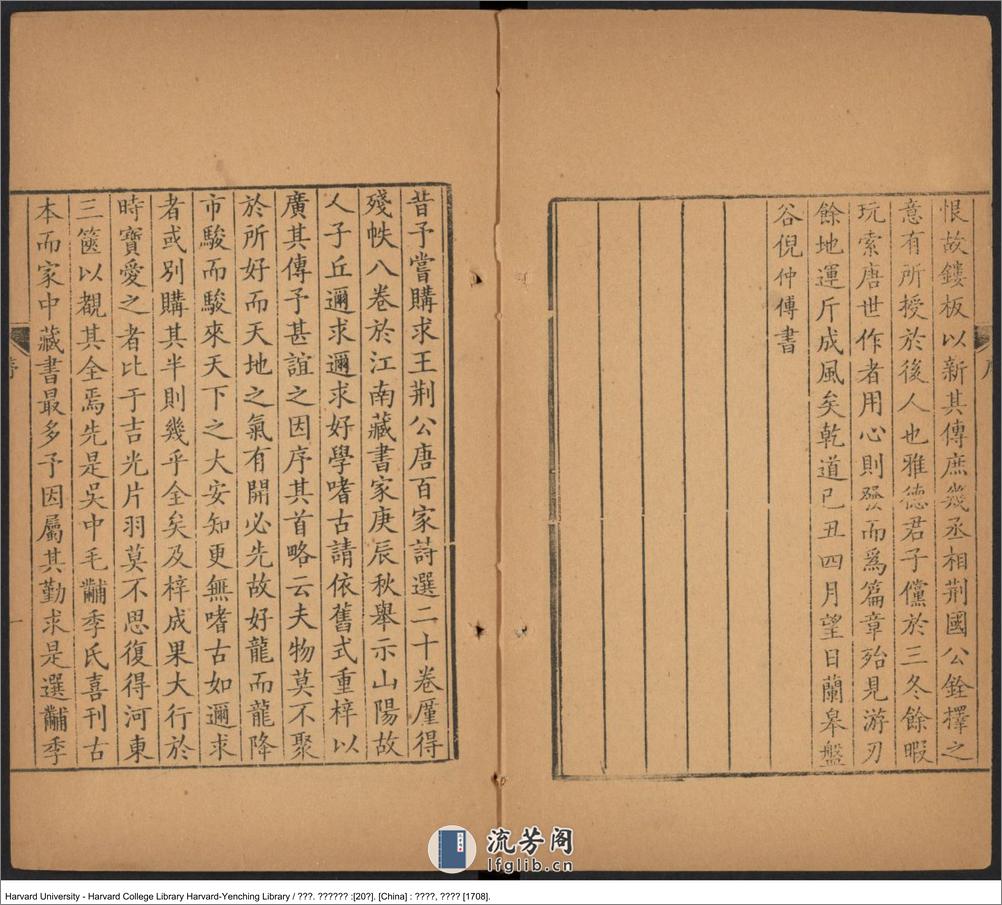 恨故鏤板以新其傳庶幾丞相荆國公銓擇之
意有所授於後人也雅德君子儻於三冬餘暇
玩索唐世作者用心則發而爲篇章殆見游刃
餘地運斤成風矣乾道己丑四月望日蘭皋盤
谷倪仲傅書
昔予嘗購求王荆公唐百家詩選二十卷厪得
殘帙八卷於江南藏書家庚辰秋舉示山陽故
人子丘邇求邇求好學嗜古請依舊式重梓以
廣其傳予甚誼之因序其首略云夫物莫不聚
於所好而天地之氣有開必先故好龍而龍降
市駿而駿來天下之大安知更無嗜古如邇求
者或别購其半則幾乎全矣及梓成果大行於
時寶愛之者比于吉光片羽莫不思復得河東
三篋以觀其全焉先是吳中毛黼季氏喜刊古
本而家中藏書最多予因屬其勤求是選黼季
序
一
流芳阁
lfglib.cn
Harvard University - Harvard College Library Harvard-Yenching Library / ???. ?????? :[20?]. [China] : ????, ???? [1708].